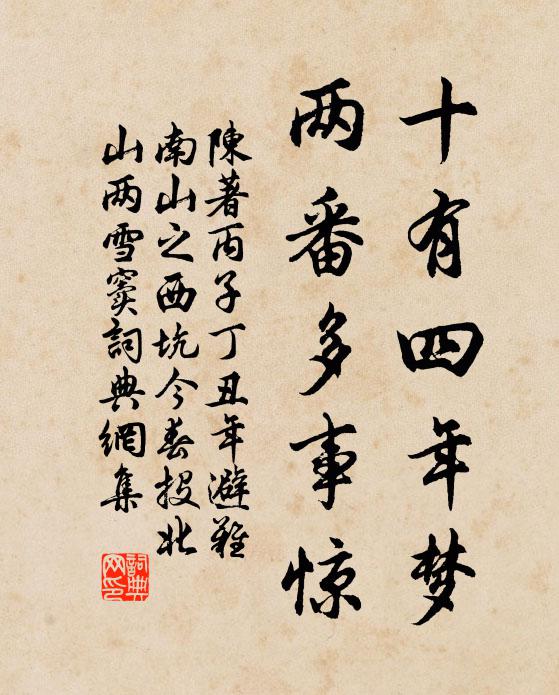 十有四年梦
两番多事惊
陳著丙子丁丑年避難
南山之西坑今春投北
山两雪窦詞典網集
詞典網印